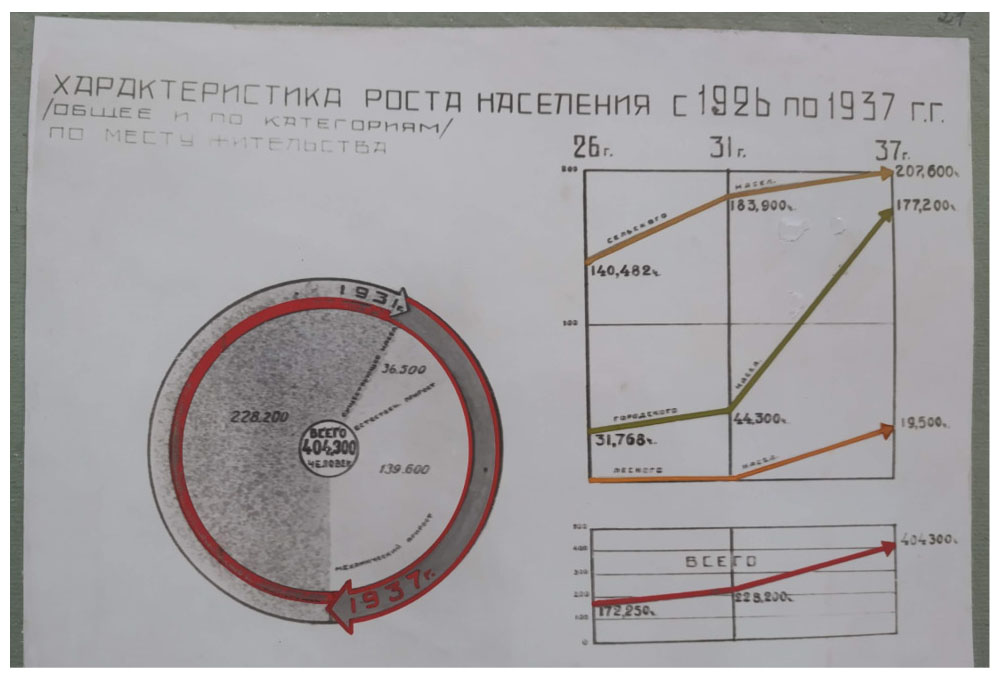 21
ХАРАКТЕРИСТИКА РОСТА НАСЕЛЕНИЯ с 1926 по 1937 г.г.
/ОБЩЕЕ И ПО КАТЕГОРИЯМ/
ПО МЕСТУ ЖИТЕЛЬСТВА
26г. 31г. 37г.
207,600ч.
НАСЕЛ.
183,900ч.
177,200ч.
СЕЛЬСКОГО
140,482ч.
100
НАСЕЛ.
ГОРОДСКОГО
44,300ч.
31,768ч.
19,500ч.
ЛЕСНОГО
НАСЕЛ.
1931г.
СУЩЕСТВУЮЩАЯ
36.500
ЕСТЕСТВЕН. ПРИРОСТ
228.200
ВСЕГО
404,300
ЧЕЛОВЕК
139.600
МЕХАНИЧЕСКИЙ ПРИРОСТ
1937г.
500
400
300
200
100
0
ВСЕГО
404300ч.
228,200ч.
172,250ч.